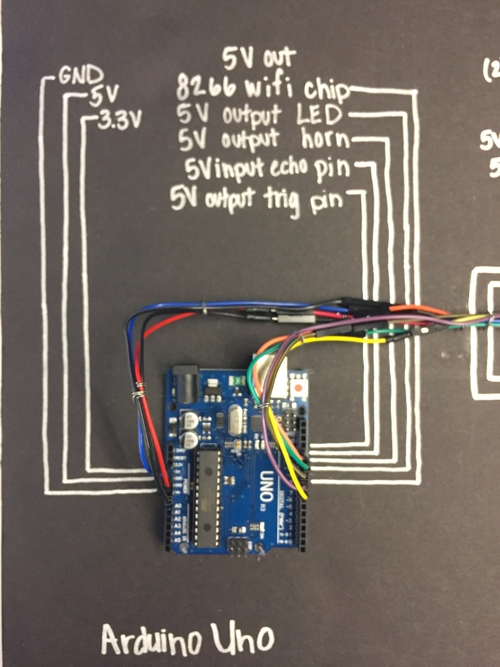 GND
5V
3.3V
5V out
8266 wifi chip
5V output LED
5V output horn
5V input echo pin
5V output trig pin
(2
5V
5
UNO
A0
A1
A2
A3
A4
A5
Arduino Uno